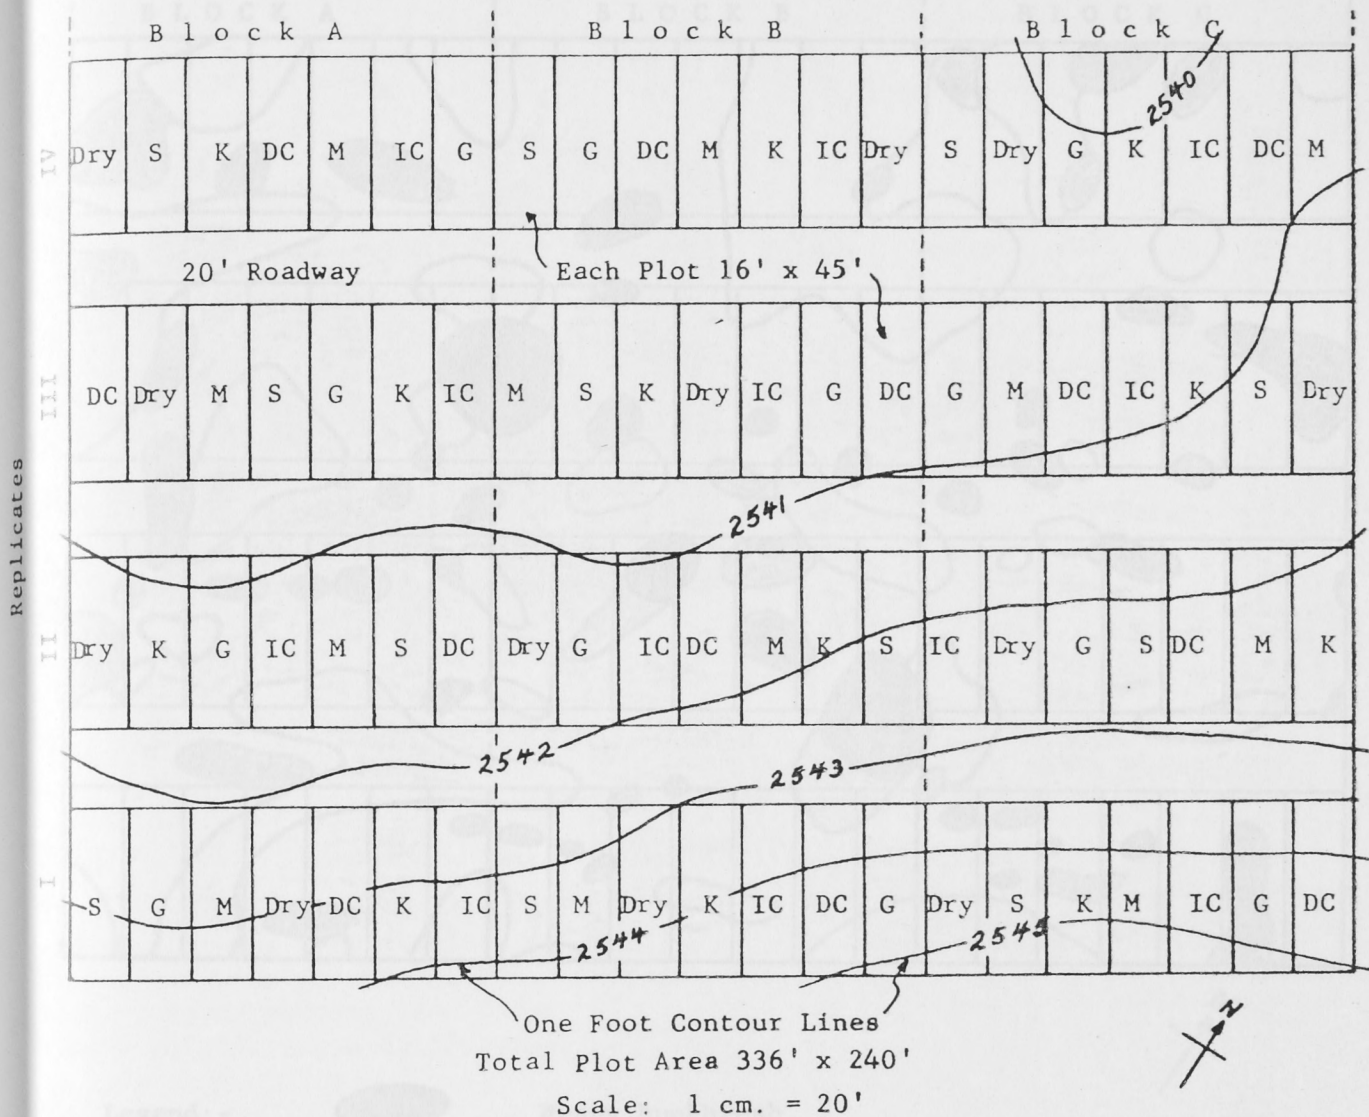 B l o c k A B l o c k B B l o c k C
2540
IV Dry S K DC M IC G S G DC M K IC Dry S Dry G K IC DC M
20' Roadway Each Plot 16' x 45'
III DC Dry M S G K IC M S K Dry IC G DC G M DC IC K S Dry
2541
Replicates
II Dry K G IC M S DC Dry G IC DC M K S IC Dry G S DC M K
2542 2543
I S G M Dry DC K IC S M Dry K IC DC G Dry S K M IC G DC
2544 2545
One Foot Contour Lines
N
Total Plot Area 336' x 240'
Scale: 1 cm. = 20'